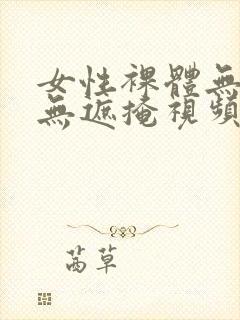 女性裸體無
無遮掩視頻
茜草